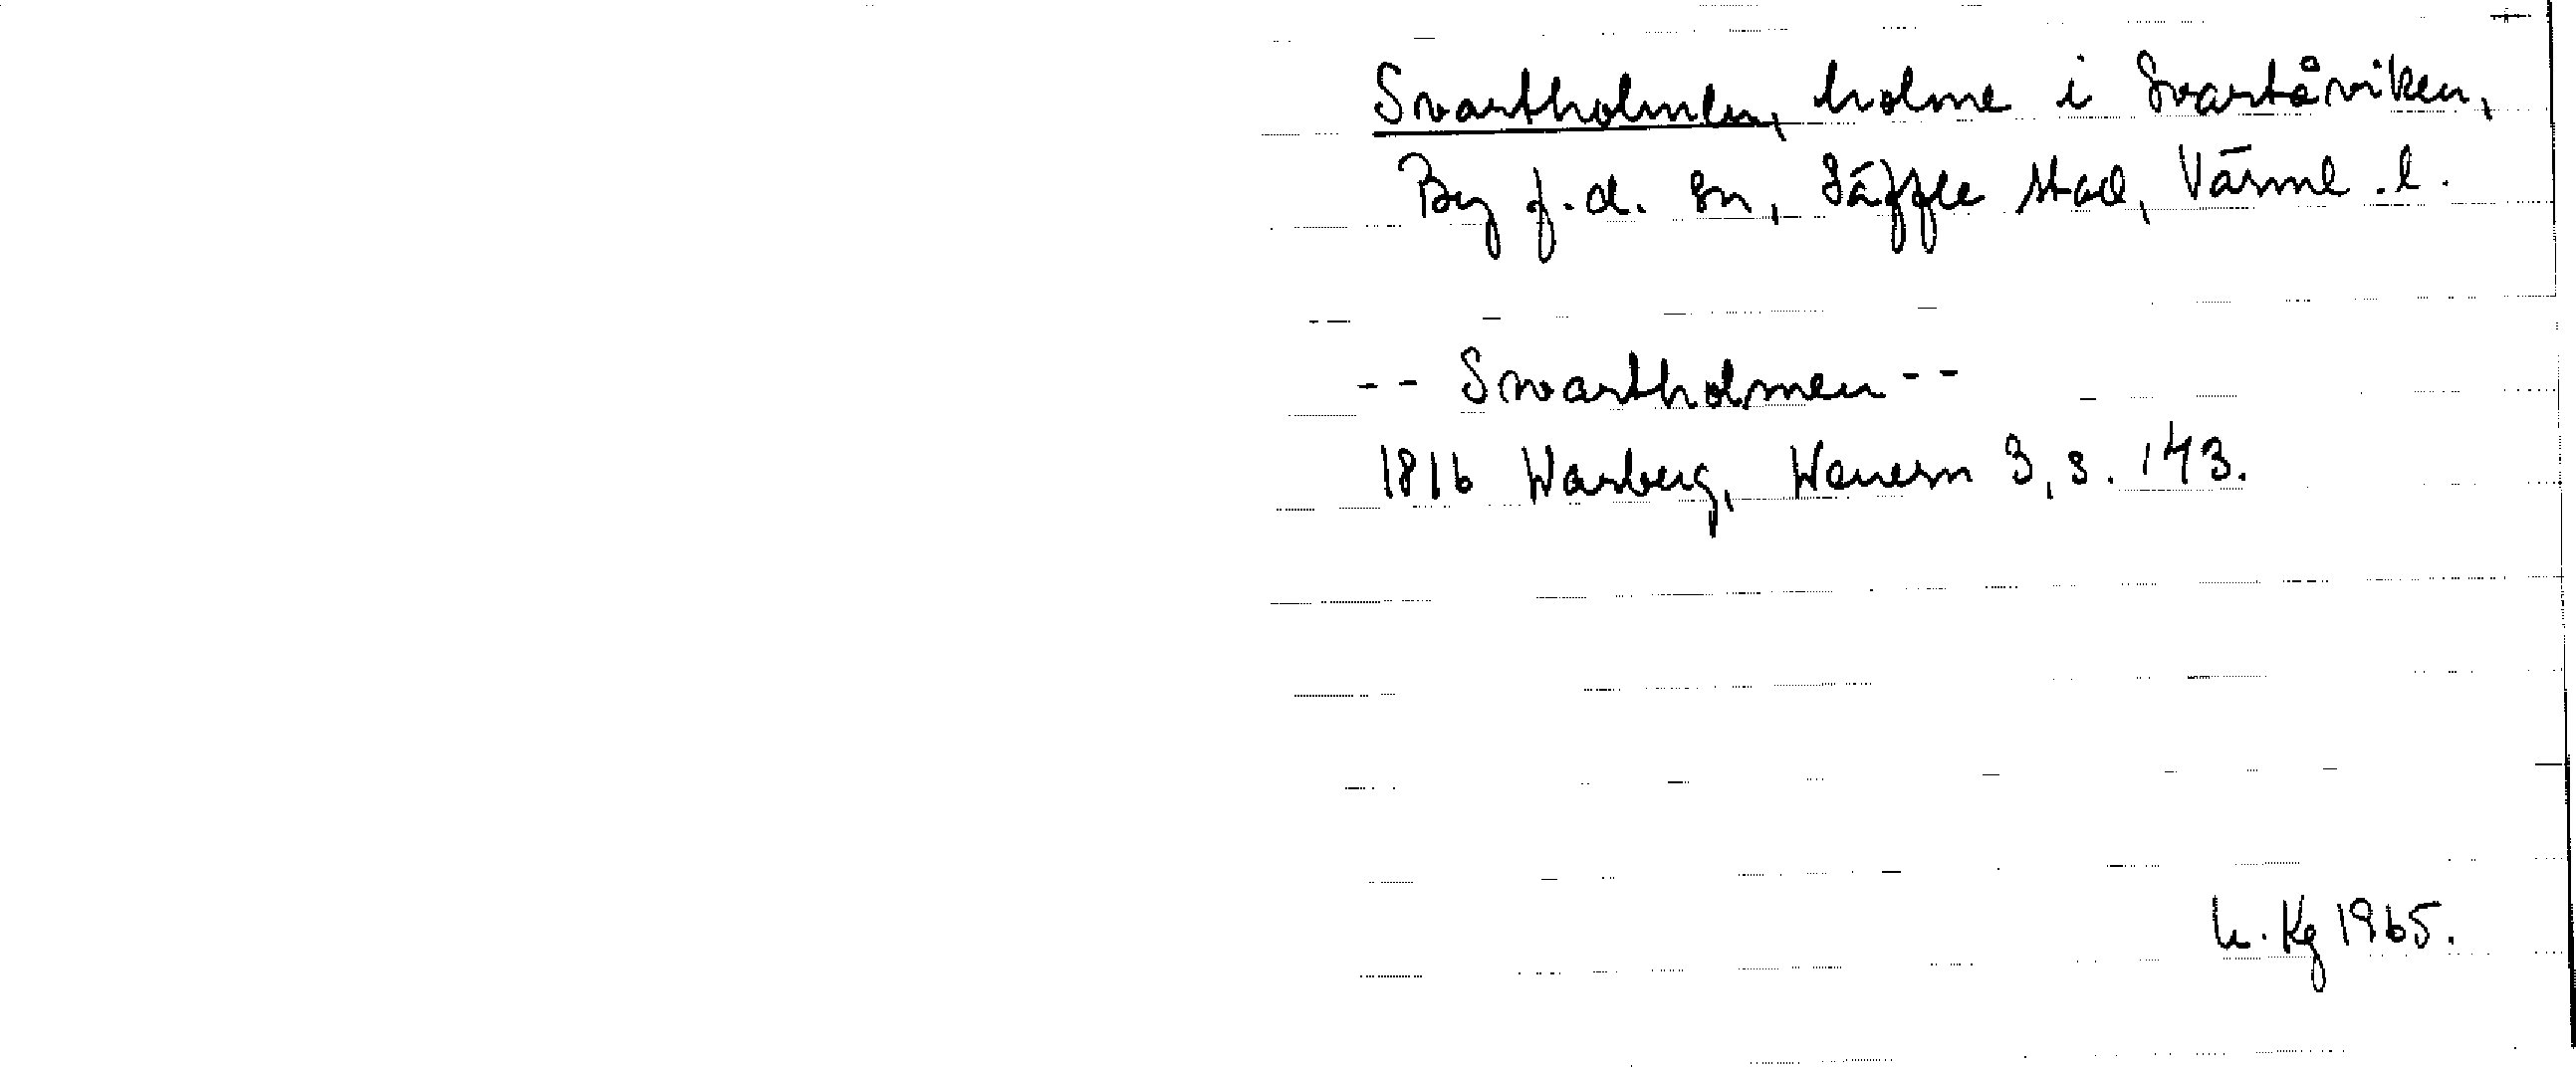 Svartholmen, holme i Svartåviken,
By f.d. sn, Säffle stad, Värml. l.
-- Svartholmen --
1816 Warberg, Wenern 3, s. 143.
L. Kg 1965.